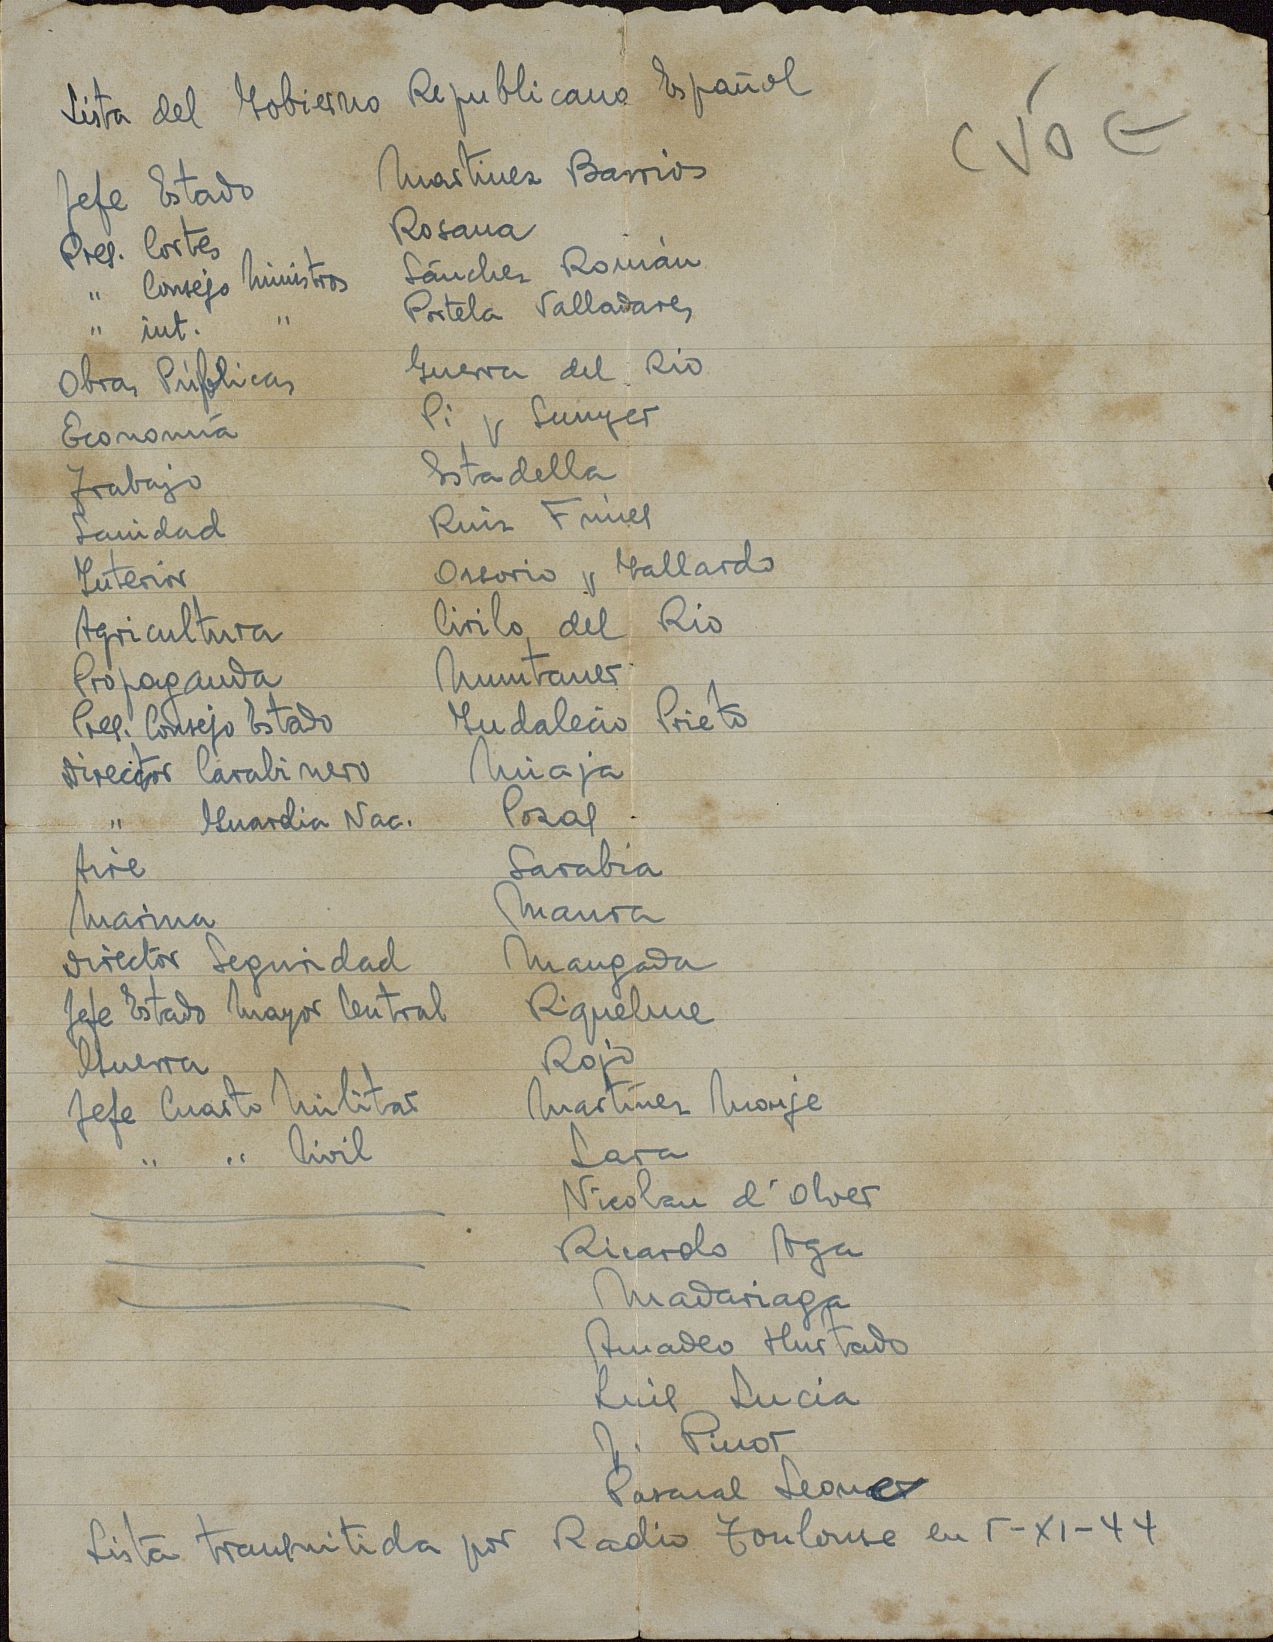 Lista del Gobierno Republicano Español
Jefe Estado Martinez Barrios
Pres. Cortes Rosana
" Consejo Ministros Sánchez Román
" int. " Portela Valladares
Obras Públicas Guerra del Rio
Economía Pi y Sunyer
Trabajo Estadella
Sanidad Ruiz Fúnes
Interior Ossorio y Gallardo
Agricultura Cirilo del Rio
Propaganda Muntaner
Pres. Consejo Estado Indalecio Prieto
Director Carabinero Miaja
" Guardia Nac. Posas
Aire Sarabia
Marina Maura
Director Seguridad Mangada
Jefe Estado Mayor Central Riquelme
Guerra Rojo
Jefe Cuarto Militar Martínez Monje
" " Civil Lara
Nicolau d'Olwer
Ricardo
Madariaga
Amadeo Hurtado
Luis Lucia
J. Pinot
Pascual
Lista transmitida por Radio Toulouse en 5-XI-44